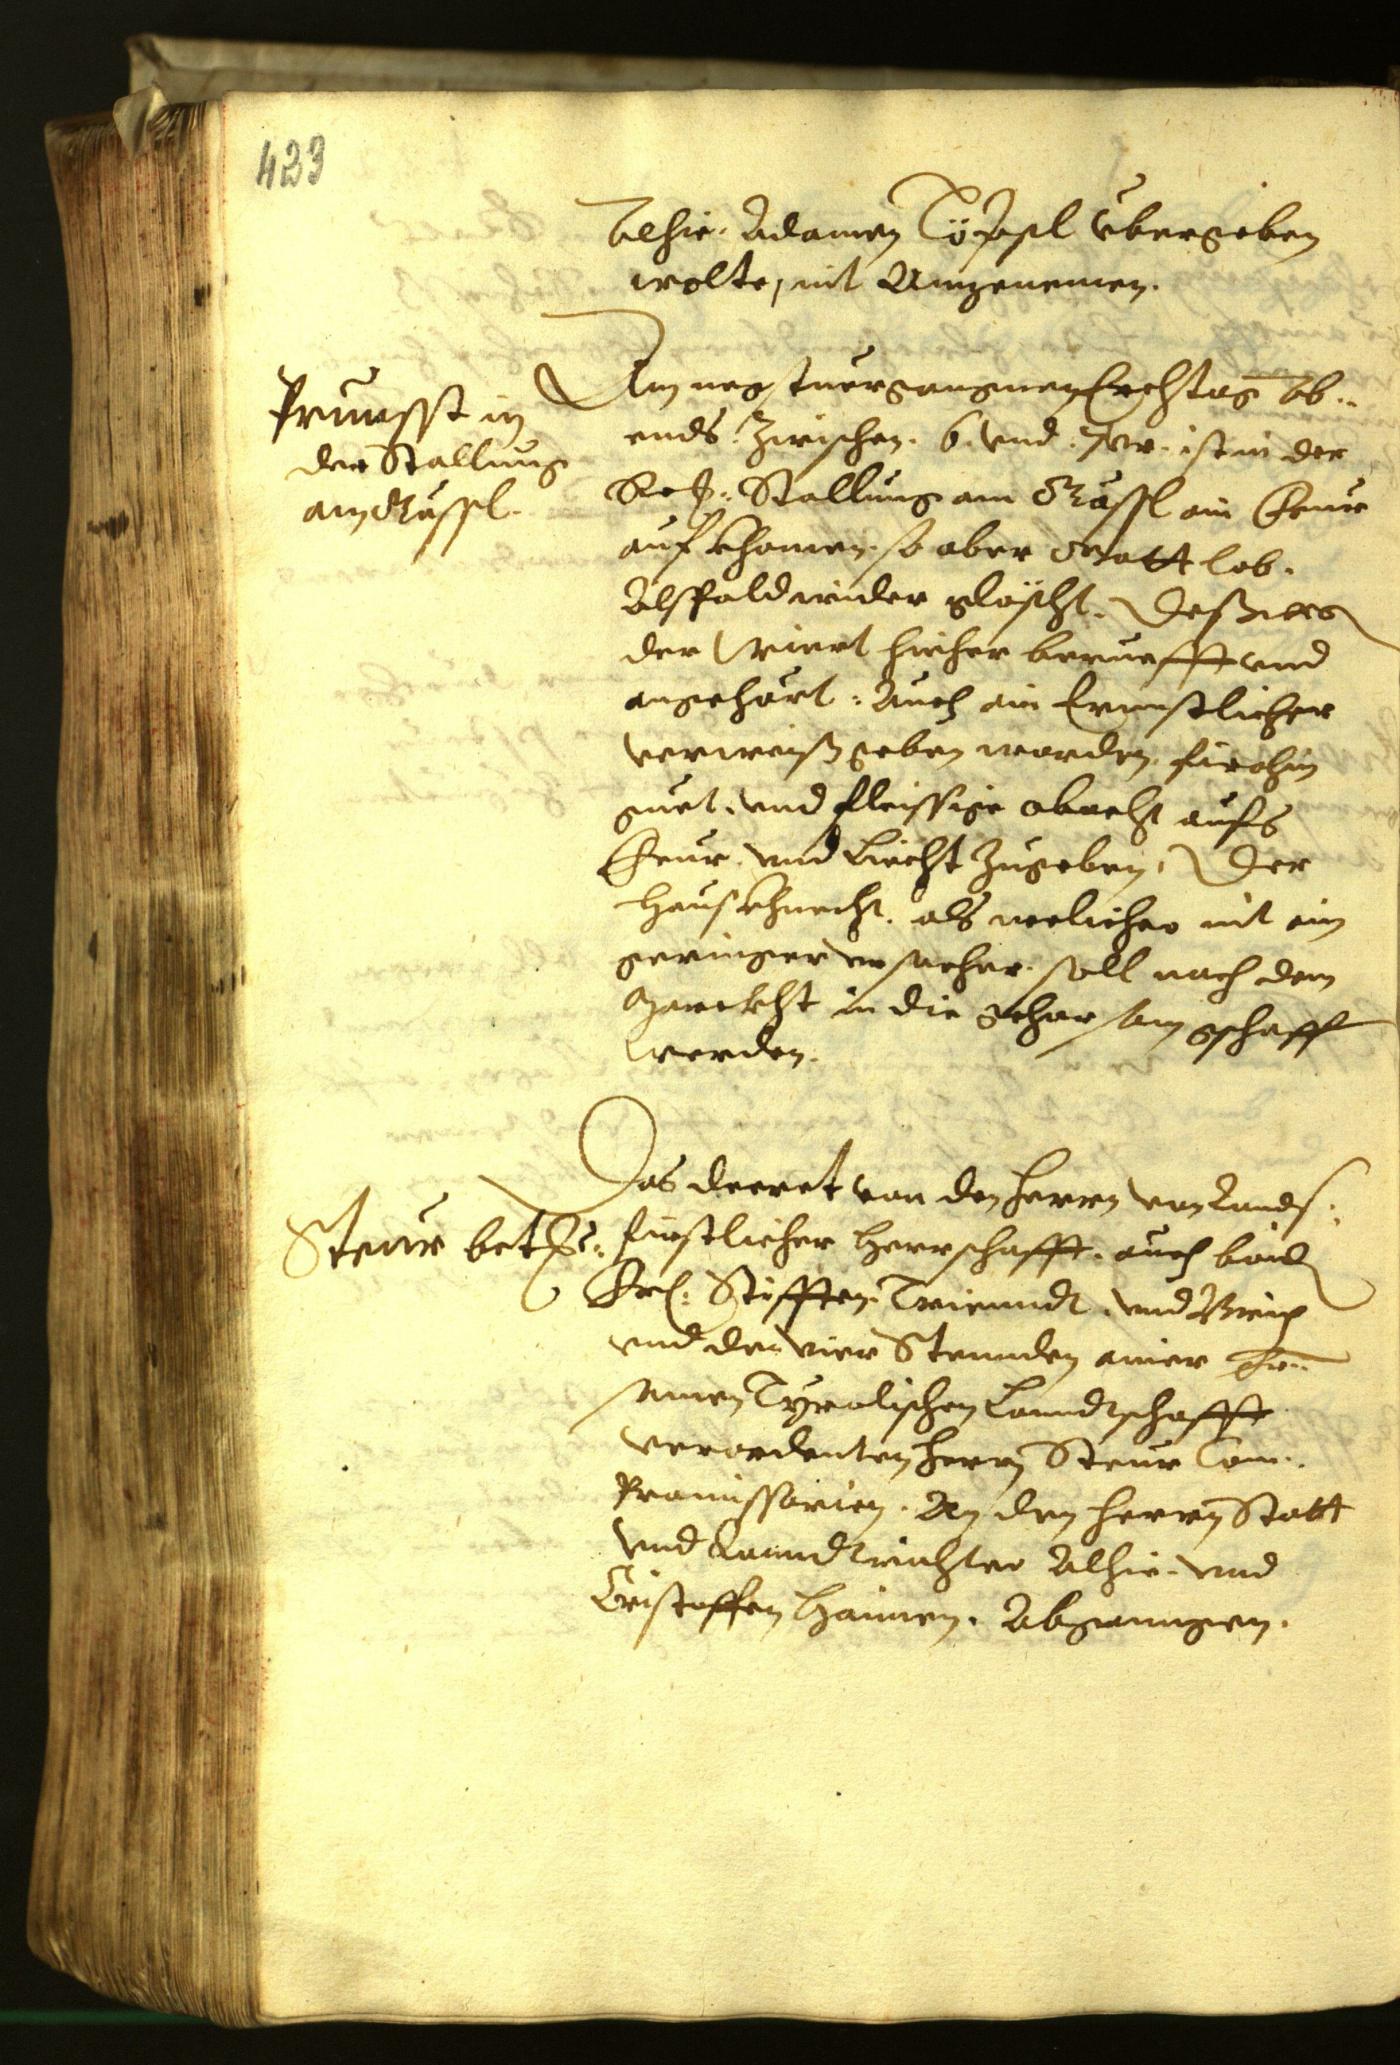 423
alhie. Adamen Töppl übergeben
wolte, nit Angenomen.
Prunsst in
der Stallung
am Rässl.
Am negstuergangnen Erchtag ab..
ends. Zwischen. 6. vnd. 7 vr. ist in der
Stallung am Rässl ain Feur
auf khomen. so aber Gott lob.
Alspald wider glöscht. Deßwegen
der Wiert hieher beruefft vnd
angehört. Auch ain Ernnstlicher
verweiß geben worden. fürohin
guet. vnd fleissige obacht aufs
Feur. vnd Liecht Zugeben. Der
Hauskhnecht. als welicher nit ein
geringer vrsacher. soll nach dem
Marckht in die gehorsam gschafft
werden.
Steur betr:
Das decret von den herrn von Lands:
fürstlicher Herrschafft. auch baid
Frl: Stifften. Trienndt. vnd Brixen
vnd den vier Stennden ainer Er..
samen Tyrolischen Lanndtschafft
verordenten herrn Steur Com..
Promissarien. An den herrn Statt
vnd Lanndtrichter Alhie. vnd
Cristoffen Haimen. Abganngen.